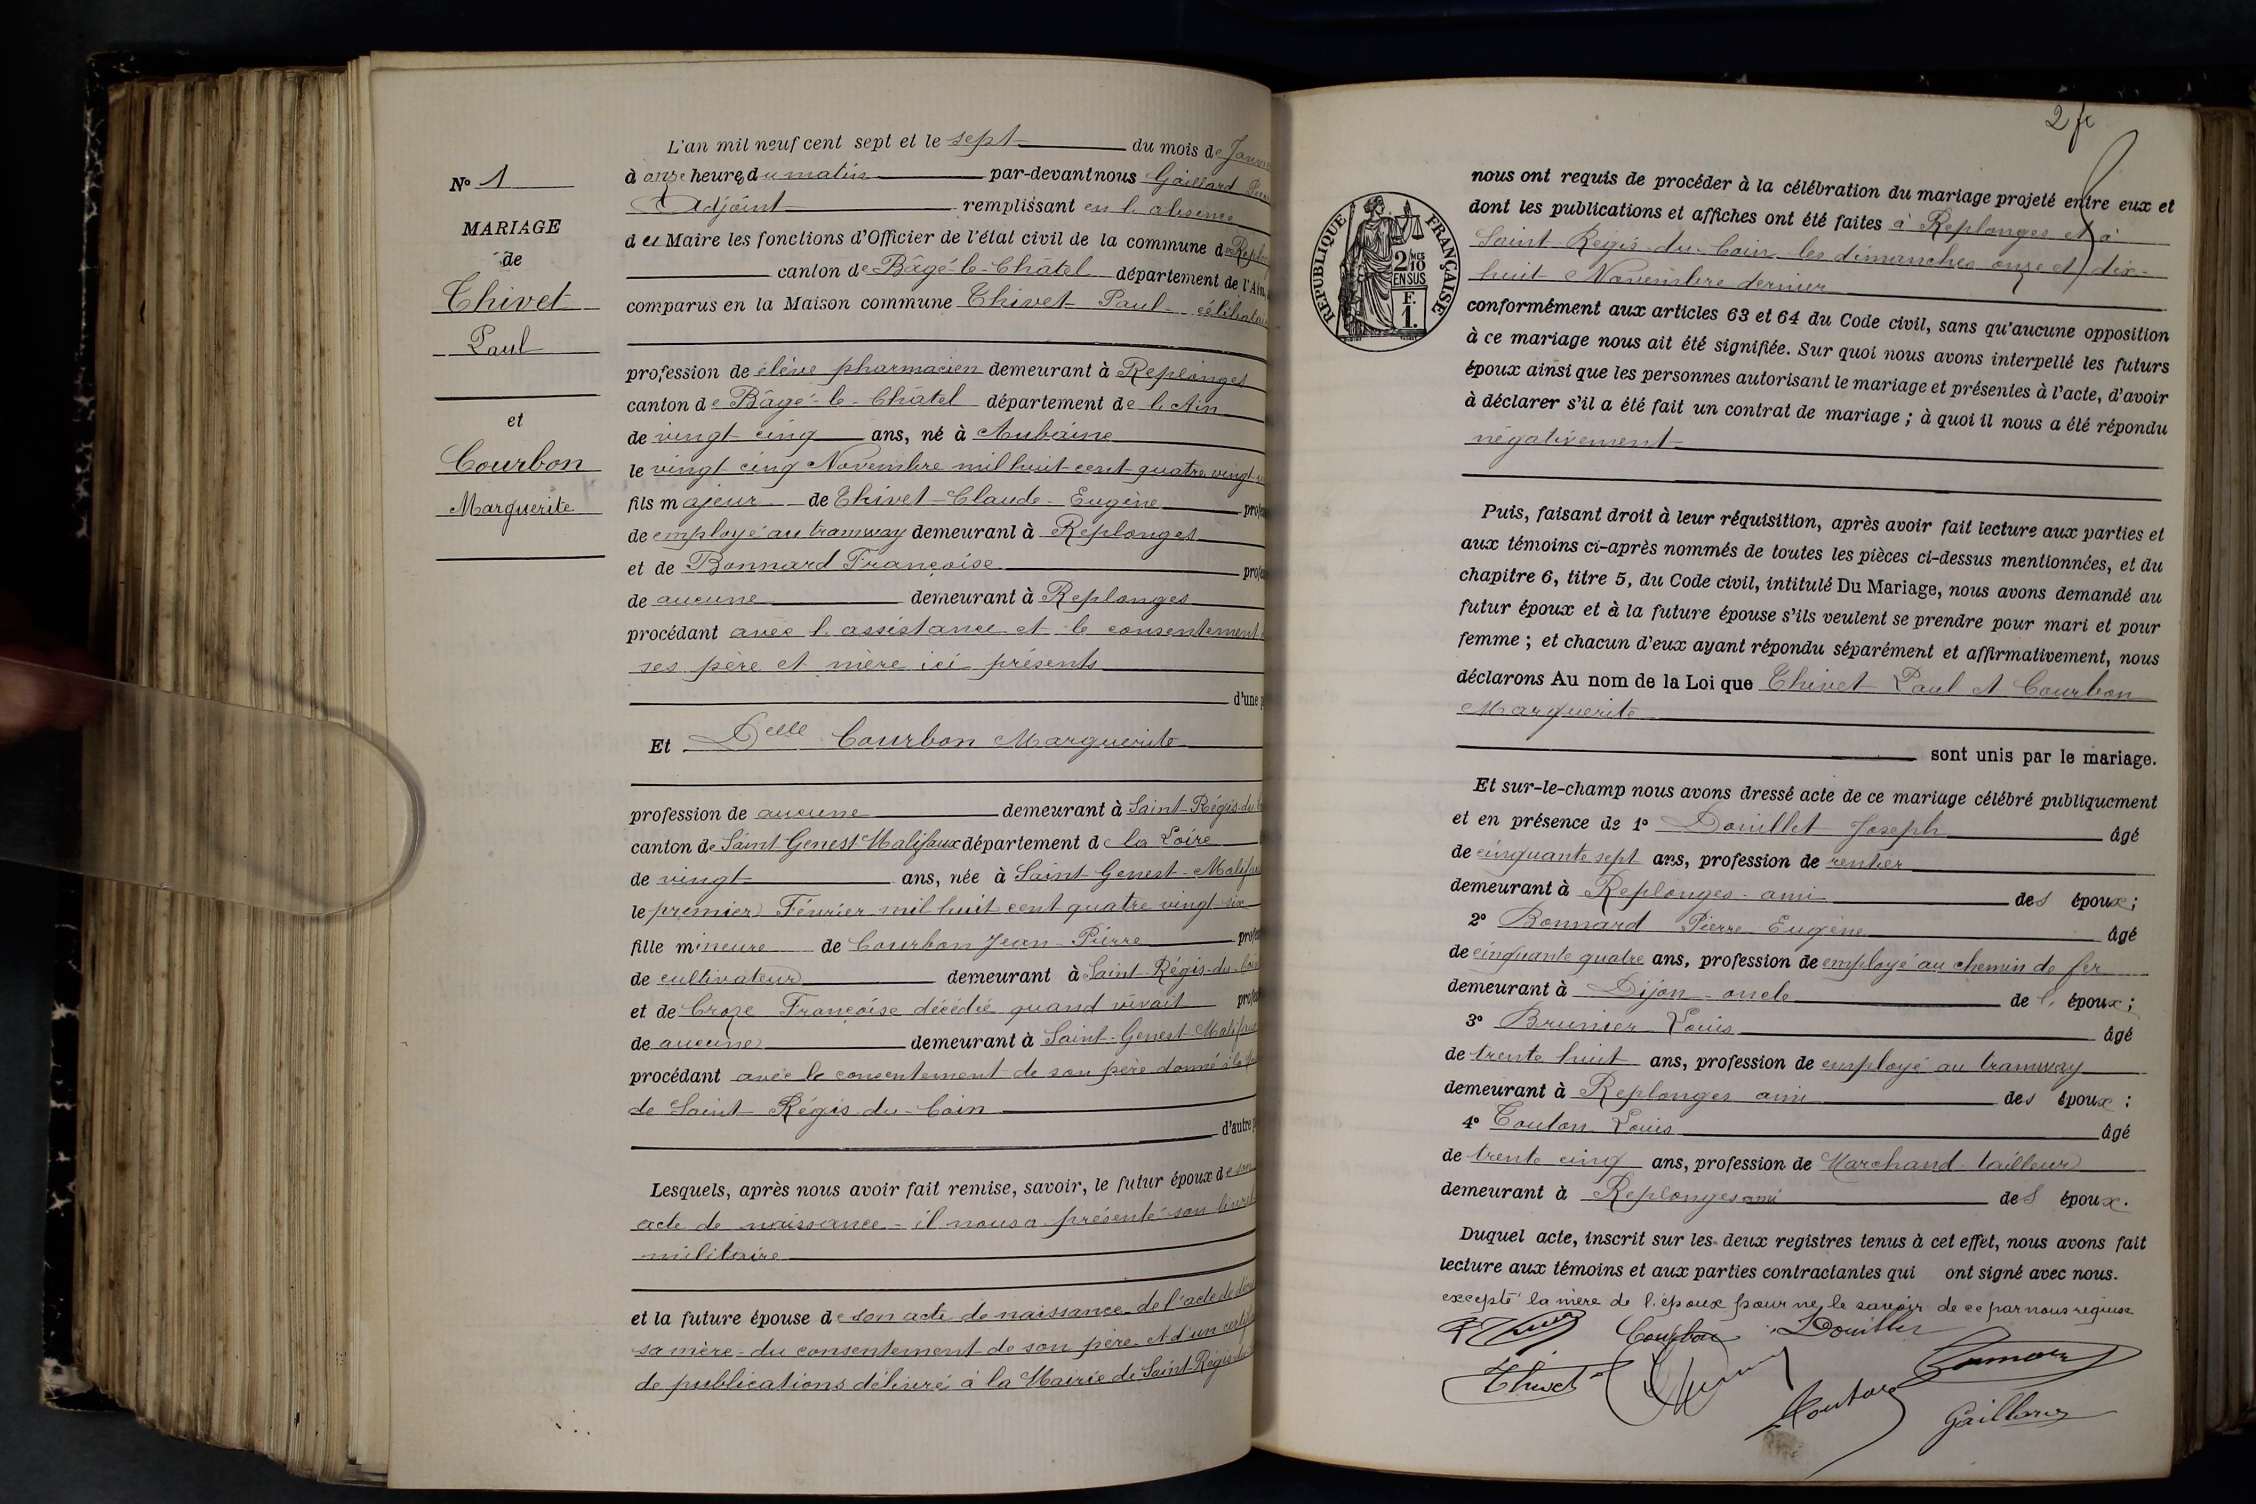 N° 1
MARIAGE
de
Thivet
Paul
et
Courbon
Marguerite
L'an mil neuf cent sept et le sept du mois de
à onze heures du matin par-devant nous Gaillard
Adjoint remplissant en l'absence
du Maire les fonctions d'Officier de l'état civil de la commune de
canton de Bâgé-le-Châtel département de l'Ain,
comparus en la Maison commune Thivet Paul
profession de élève pharmacien demeurant à Replonges
canton de Bâgé-le-Châtel département de l'Ain
de vingt cinq ans, né à Aubaine
le vingt cinq Novembre mil huit cent quatre vingt
fils majeur de Thivet Claude Eugène
de employé au tramway demeurant à Replonges
et de Bonnard Françoise
de aucune demeurant à Replonges
procédant avec l'assistance et le consentement
ses père et mère ici présents
d'une
Et Delle Courbon Marguerite
profession de aucune demeurant à Saint-Régis-du
canton de Saint Genest Malifaux département de la Loire
de vingt ans, née à Saint Genest
le premier Février mil huit cent quatre vingt six
fille mineure de Courbon Jean Pierre
de cultivateur demeurant à Saint-Régis-du
et de Croze Françoise décédée quand vivait
de aucune demeurant à Saint-Genest
procédant avec le consentement de son père donné
de Saint Régis du Coin
d'autre
Lesquels, après nous avoir fait remise, savoir, le futur époux de son
acte de naissance - il nous a présenté son
militaire
et la future épouse de son acte de naissance - de l'acte de
sa mère - du consentement de son père - et d'un
de publications délivré à la Mairie de Saint Régis
2 fc
RÉPUBLIQUE FRANÇAISE
2/10
EN SUS
F.
1.
nous ont requis de procéder à la célébration du mariage projeté entre eux et
dont les publications et affiches ont été faites à Replonges et à
Saint Régis-du-Coin les dimanches onze et dix-
huit Novembre dernier
conformément aux articles 63 et 64 du Code civil, sans qu'aucune opposition
à ce mariage nous ait été signifiée. Sur quoi nous avons interpellé les futurs
époux ainsi que les personnes autorisant le mariage et présentes à l'acte, d'avoir
à déclarer s'il a été fait un contrat de mariage ; à quoi il nous a été répondu
négativement
Puis, faisant droit à leur réquisition, après avoir fait lecture aux parties et
aux témoins ci-après nommés de toutes les pièces ci-dessus mentionnées, et du
chapitre 6, titre 5, du Code civil, intitulé Du Mariage, nous avons demandé au
futur époux et à la future épouse s'ils veulent se prendre pour mari et pour
femme ; et chacun d'eux ayant répondu séparément et affirmativement, nous
déclarons Au nom de la Loi que Thivet Paul et Courbon
Marguerite
sont unis par le mariage.
Et sur-le-champ nous avons dressé acte de ce mariage célébré publiquement
et en présence de 1° Douillet Joseph âgé
de cinquante sept ans, profession de rentier
demeurant à Replonges - ami des époux ;
2° Bonnard Pierre Eugène âgé
de cinquante quatre ans, profession de employé au chemin de fer
demeurant à Dijon - oncle de l'époux ;
3° Brunier Louis âgé
de trente huit ans, profession de employé au tramway
demeurant à Replonges ami des époux ;
4° Touton Louis âgé
de trente cinq ans, profession de Marchand tailleur
demeurant à Replonges ami des époux.
Duquel acte, inscrit sur les deux registres tenus à cet effet, nous avons fait
lecture aux témoins et aux parties contractantes qui ont signé avec nous.
excepté la mère de l'époux pour ne le savoir de ce par nous requise
Courbon Douillet
Thivet Bonnard
Touton Gaillard